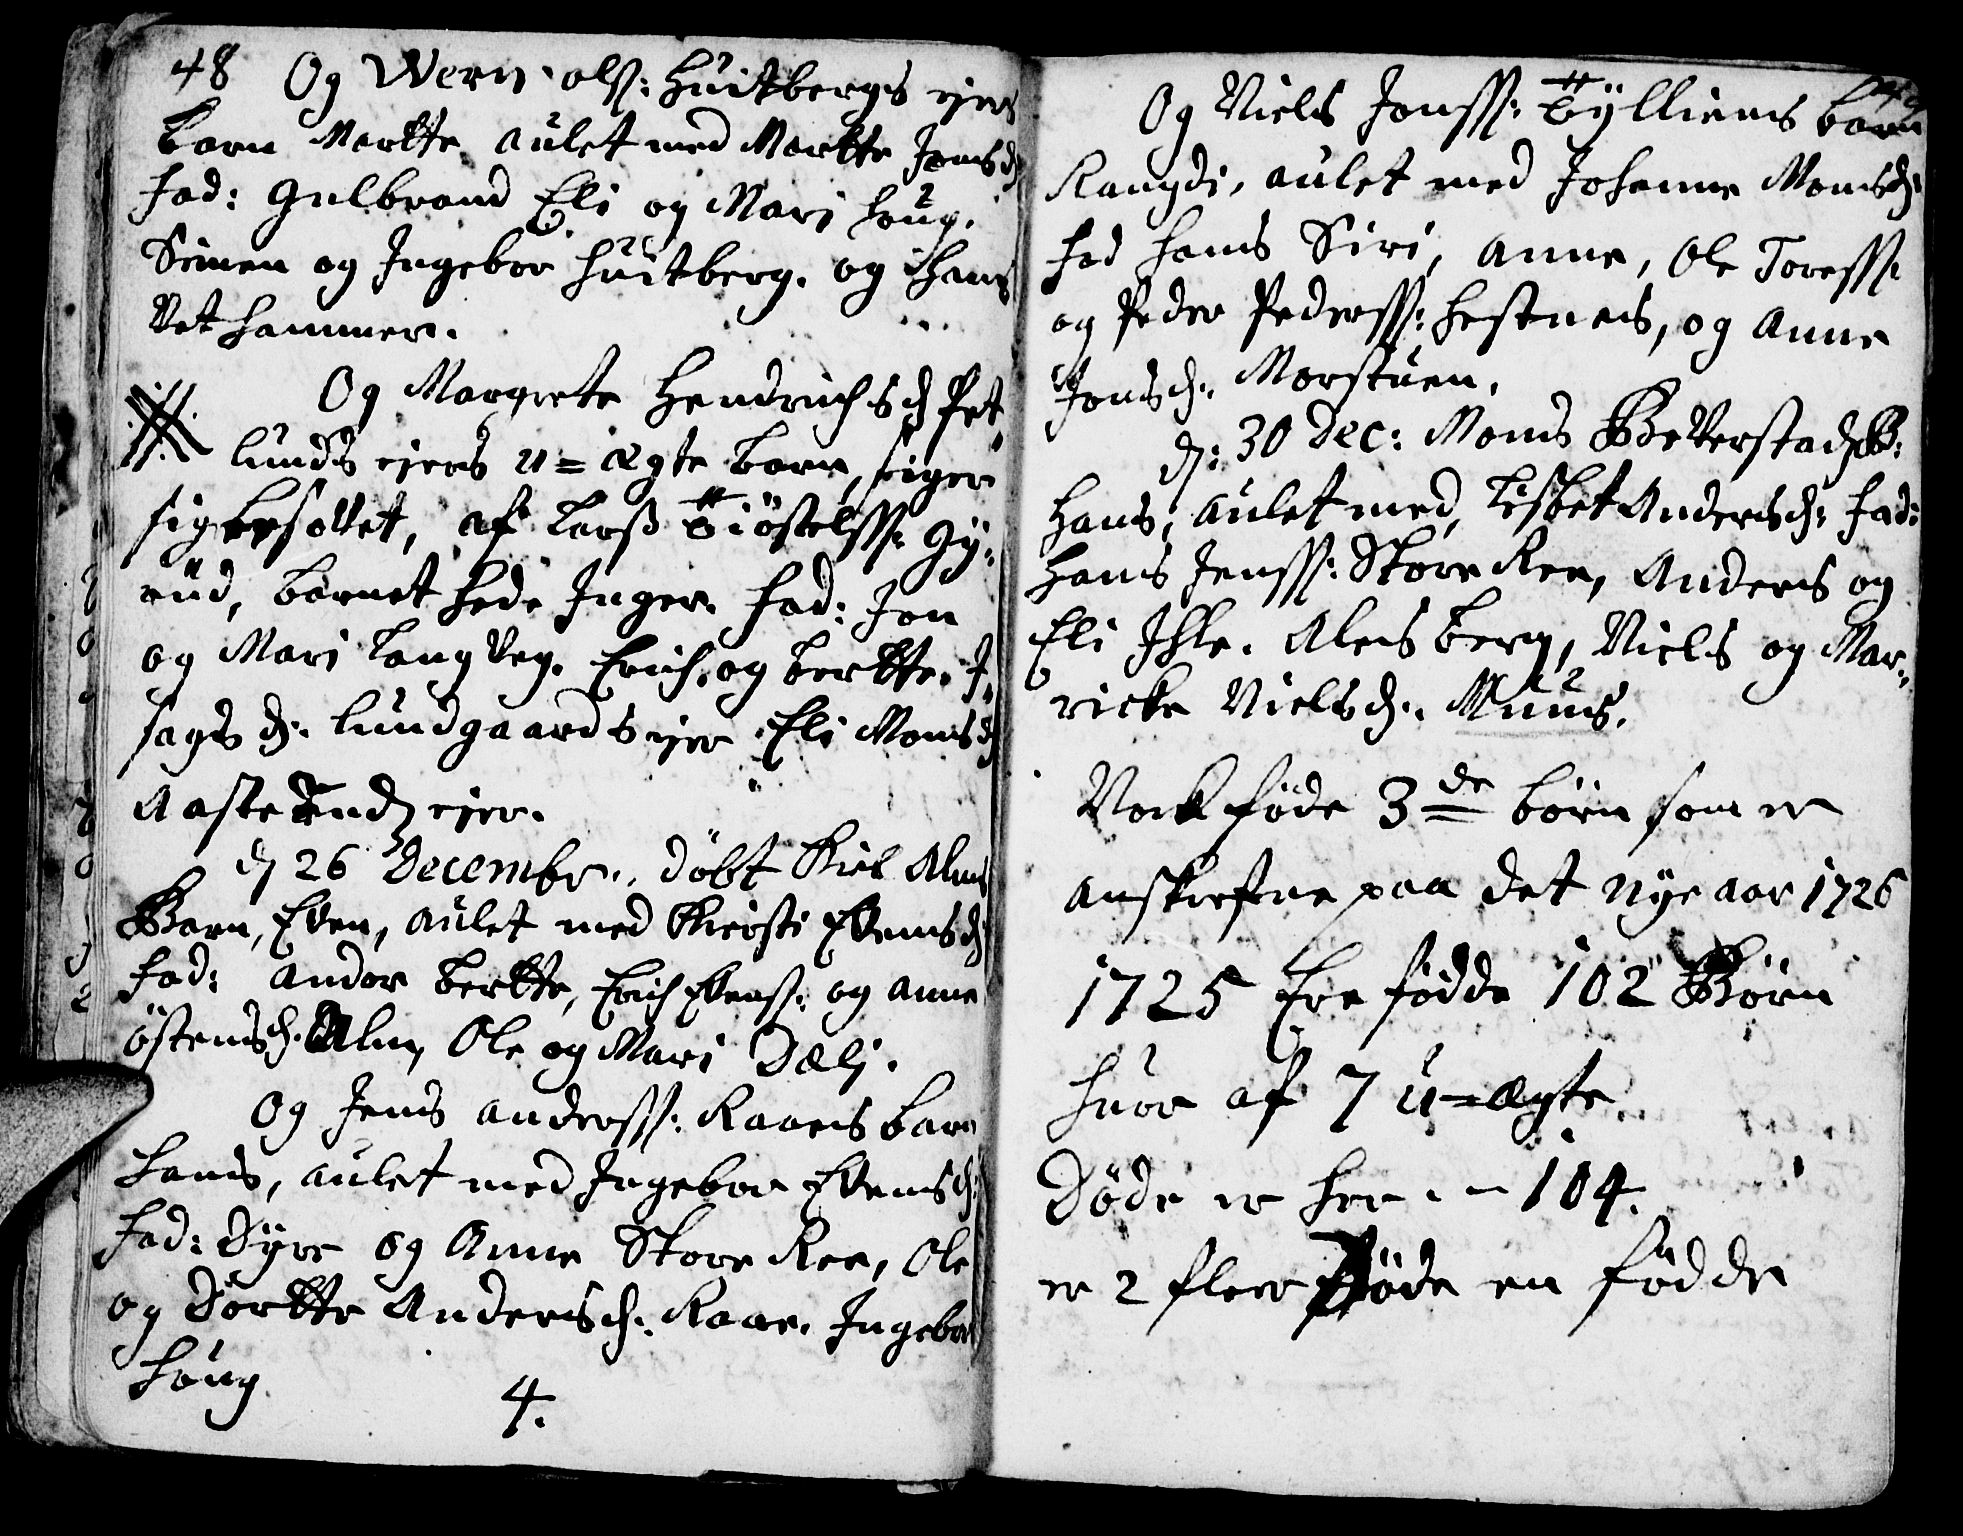 48 Og Wern olss: Huitbergs ejer
barn Marthe aulet med Marthe Jonsd
fad: Gulbrand Eli og Mari Houg.
Simen og Ingebor Huitberg. og Hans
Vethammer.
Og Margrete Hendrichsd Pet
lunds ejers u=ægte barn, siger
sig besovet, af Larss Kiöstelss: Gÿ-
rud, barnet hede Inger. fad: Jon
og Mari Langveg. Erich og berthe. I,
sagsd: Lundgaards ejer. Eli Monsd
Aasterud ejer.
d 26 Decembr., döbt Kiel Alms
Barn, Even, aulet med Kiersti Evensd
fad: Andor berthe, Erich Evenss: og Anne
östensd: Alm, Ole og Mari Dæli.
Og Jens anderss: Raaens barn
Hans, aulet med Ingebor Evensd:
fad: Dÿre og Anne Store Ree, Ole
og Dorthe Andersd: Raae. Ingebor
Houg
4.
Og Niels Jonss: Kÿlliens barn
Rangdi, aulet med Johanne Monsd:
fad Hans Siri, Anne, Ole Toress:
og Peder Pederss: Hestnes, og Anne
Jonsd: Morstuen.
d: 30 Dec: Mons Beverstad B:
Hans, aulet med Lisbet Andersd: fad:
Hans Jenss: Store Ree, Anders og
Eli Ihle. Ales berg, Niels og Mar-
ricke Nielsd: Muus.
Nock föde 3de börn som er
anskrefne paa det nye aar 1726
1725 Ere födde 102 Börn
huor af 7 u=ægte
Döde er her - 104.
er 2 fleer Döde en födde